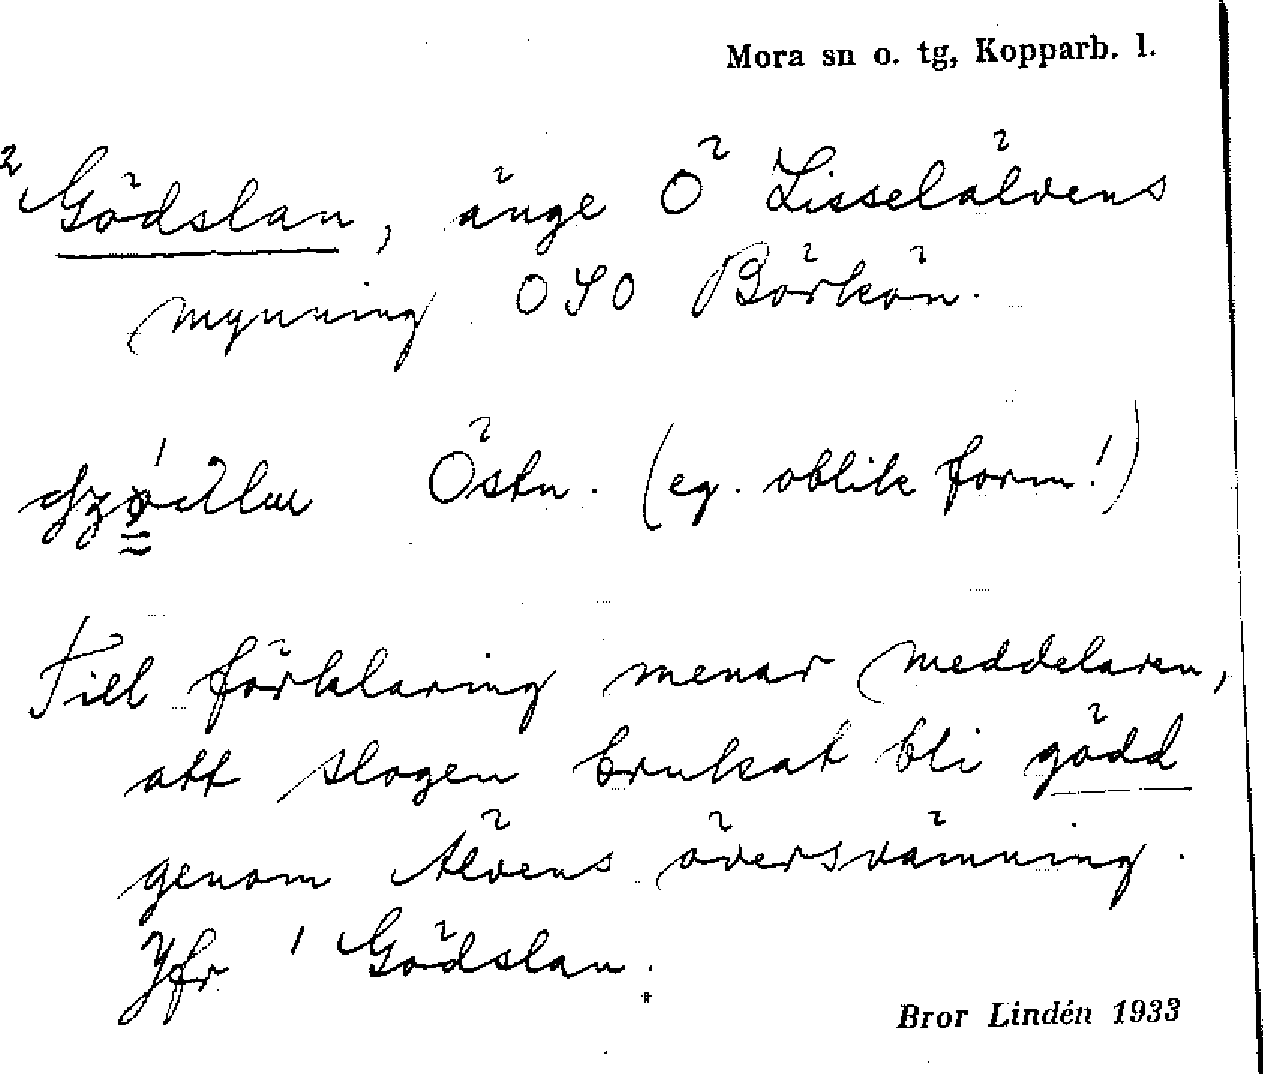 Mora sn o. tg, Kopparb. l.
2 Gödslan, änge Ö Lisselälvens
mynning OSO Börkön.
Östn. (eg. oblik form!)
Till förklaring menar meddelaren,
att slogen brukat bli gödd
genom Älvens översvämning.
Jfr 1 Gödslan.
Bror Lindén 1933